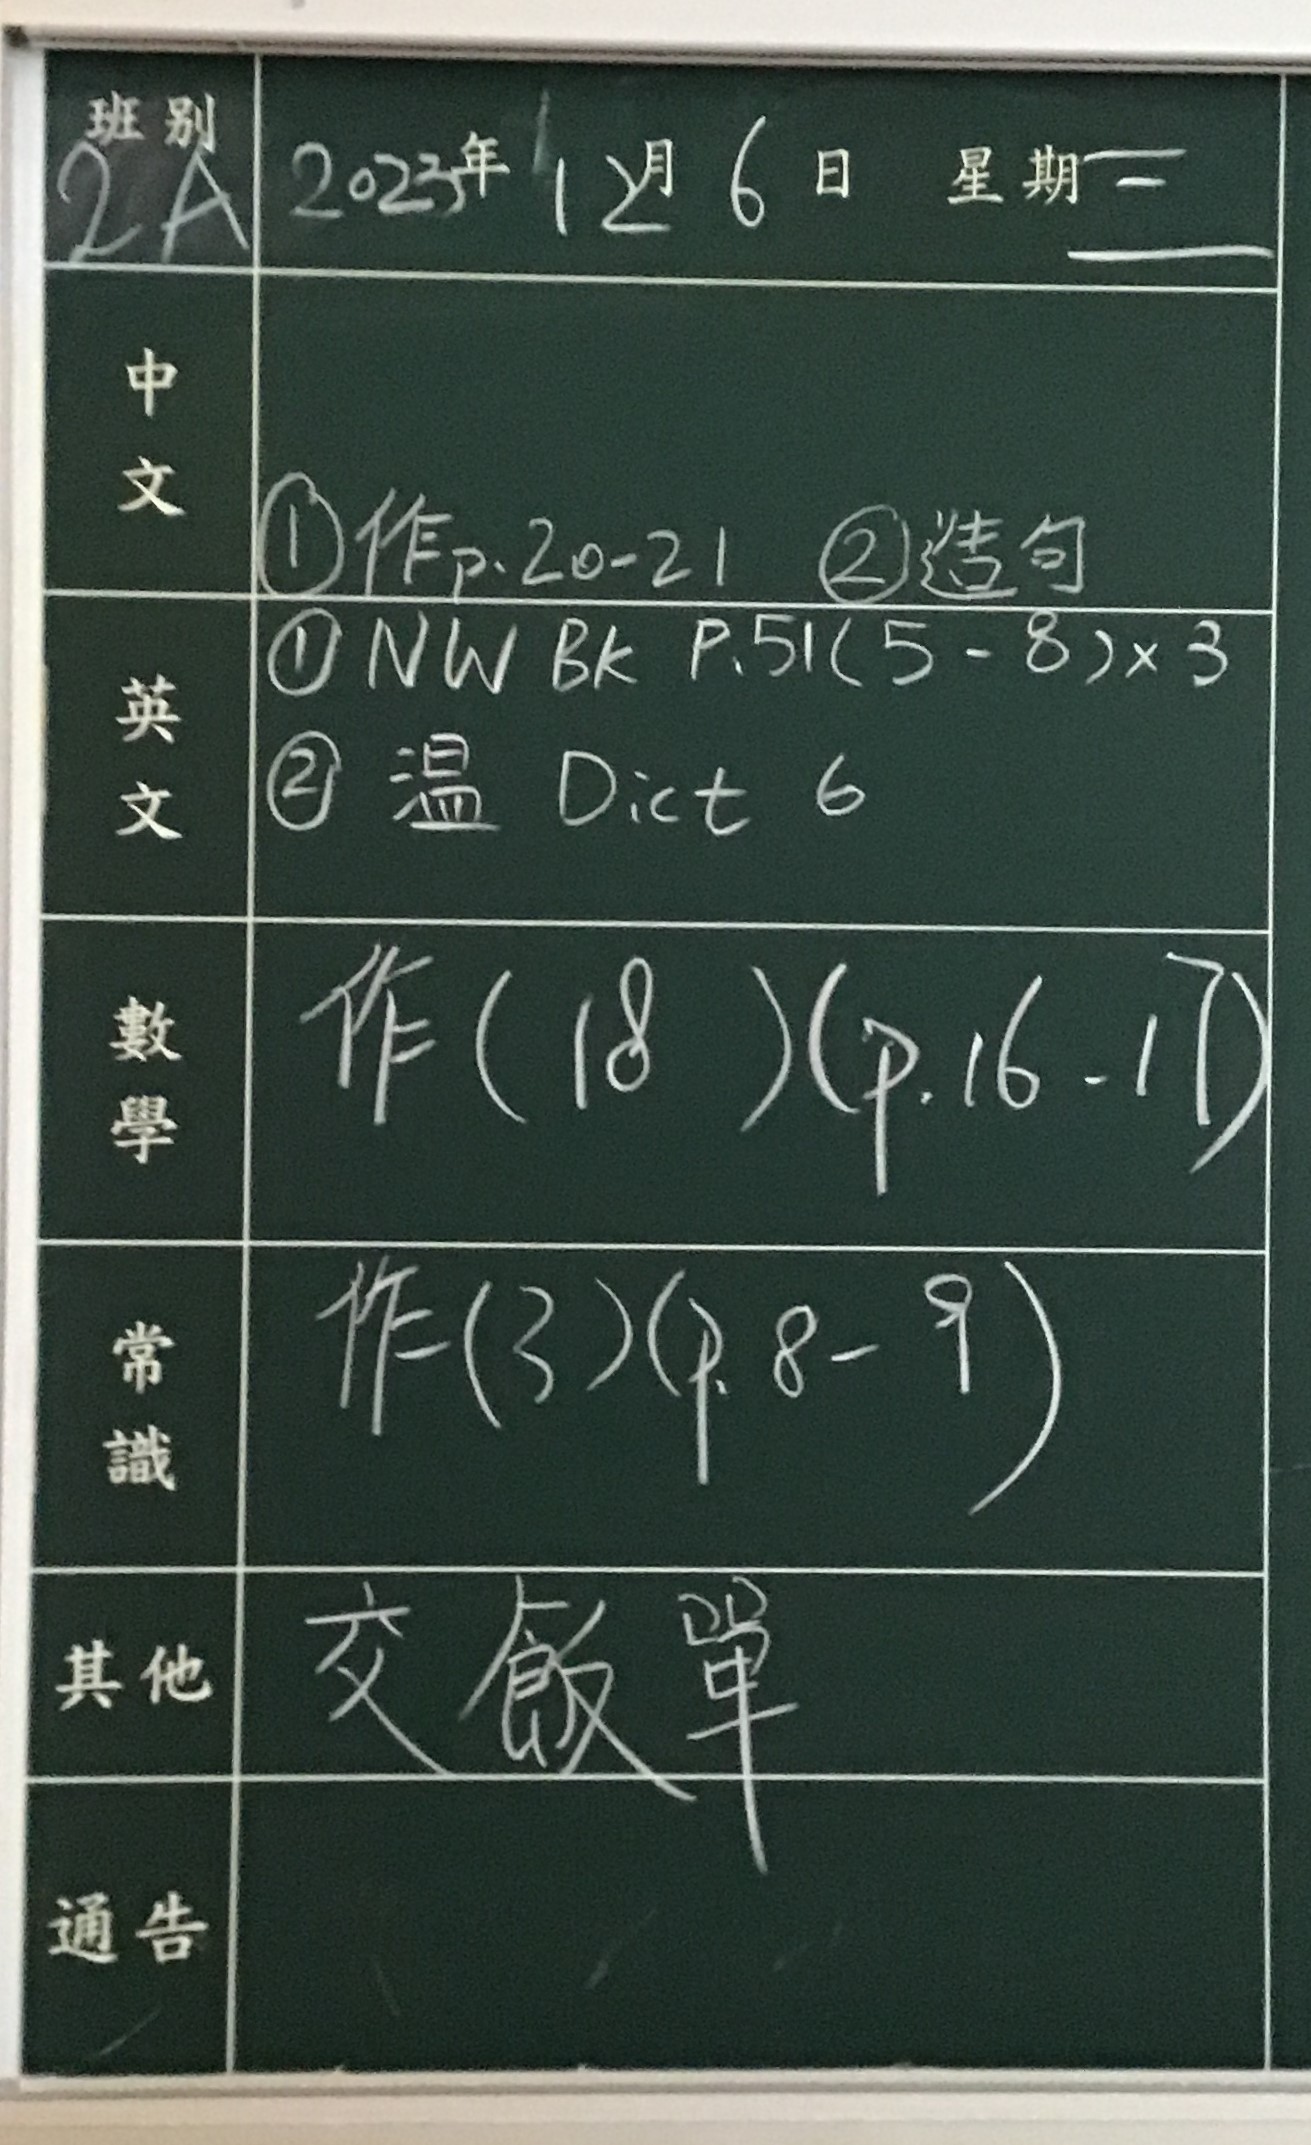 班別 2A 2023年12月6日 星期三
中文
①作p.20-21 ②造句
英文
① NW BK P.51(5-8)×3
② 溫 Dict 6
數學
作(18)(p.16-17)
常識
作(3)(p.8-9)
其他
交飯單
通告